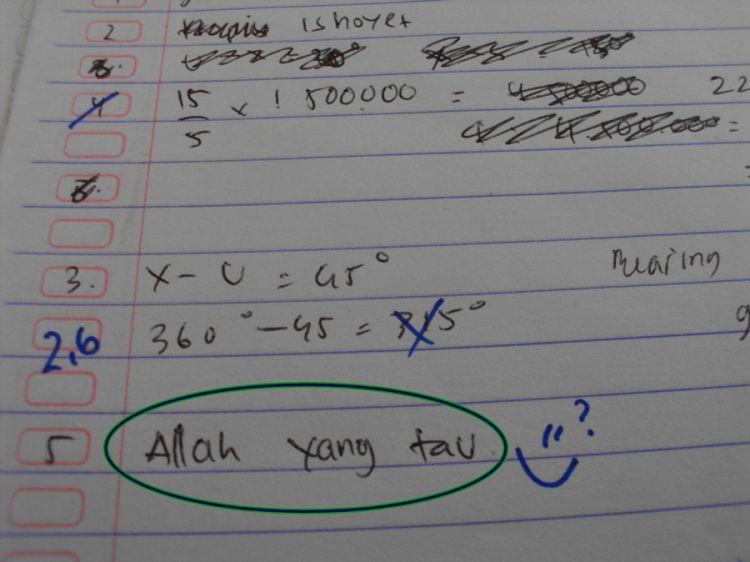 2 Ishoyet
4 15/5 x 1500000 = 22
=
3. X - U = 45° Bearing
360° - 45 = 315° 9
2,6
5 Allah yang tau ?